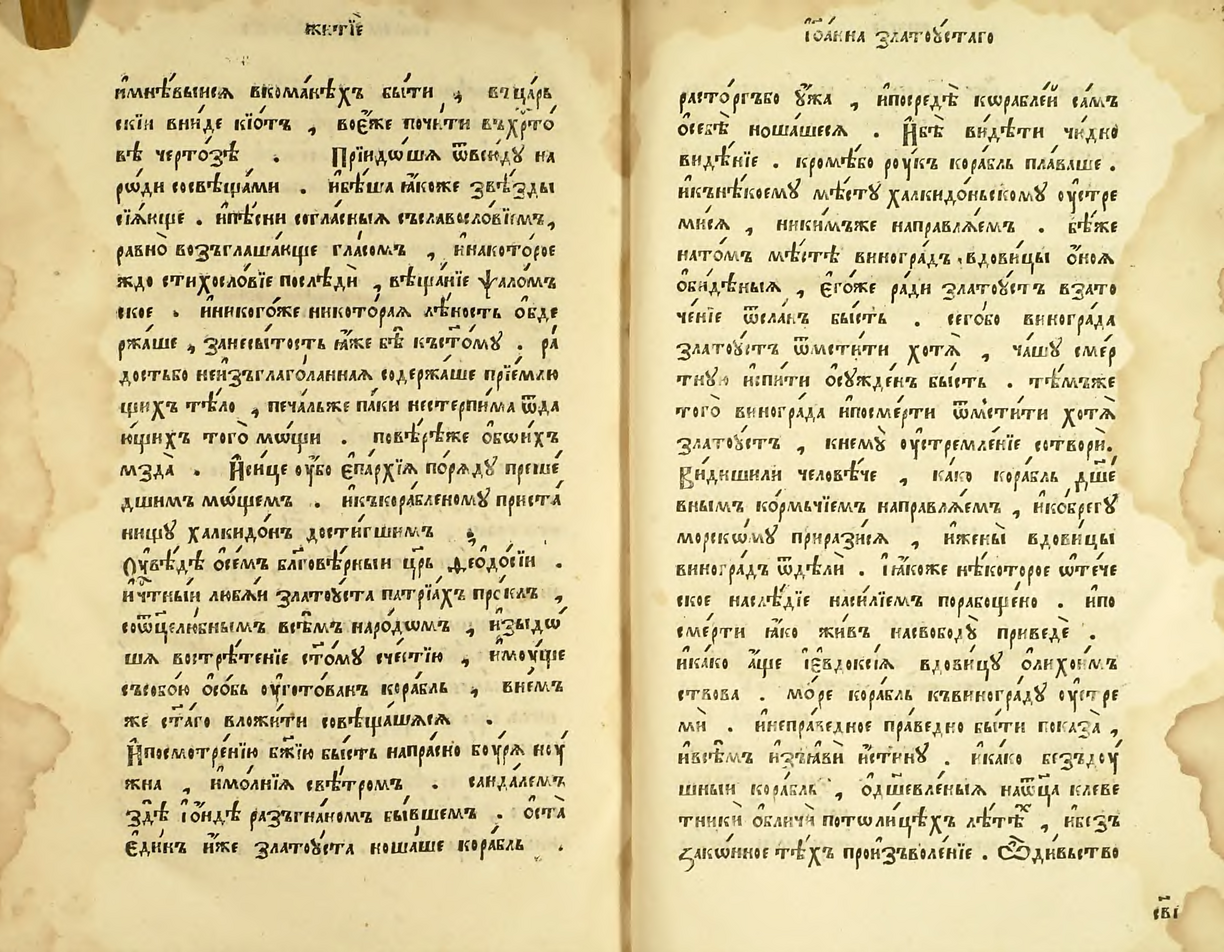 житїѐ
и҆мнѣ́вшисѧ вкома́нѣхъ бы́ти , въца́рь
скїи вни́де кїѡ́тъ , воє҆́же почи́ти въхр̑то́
вѣ черто́зѣ . Прїидѡ́шѧ ѿвсю́дꙋ на
рѡ́ди сосвѣща́ми . и҆бѣ́ша ꙗ҆́коже ѕвѣ́зды
сїѧ́юще . и҆пѣ́сни согла́сныѧ съславосло́вїемъ,
равно̀ возъглаша́юще гла́сомъ , и҆накото́рое
ждо стихосло́вїе послѣдѝ , вѣща́нїе ѱало́мъ
ское . и҆никого́же никото́раѧ лѣ́ность о҆бде
ржа́ше , занесы́тость ꙗ҆́же бѣ̀ къст҃о́мꙋ . ра́
достьбо неи҆зъглаго́ланнаѧ содержа́ше прїе́млю
щихъ тѣ́ло , печа́льже па́ки нестерпи́ма ѿда
ю́щихъ того̀ мѡ́щи . повѣ́рѣже о҆бѡ́ихъ
мзда̀ . И҆си́це ѹ҆́бо є҆па́рхїѧ по́рѧдꙋ преше́
дшимъ мѡ́щемъ . и҆къкора́бленомꙋ приста́
нищꙋ халкидо́нъ дости́гшимъ .
Оу҆вѣ́дѣ о҆се́мъ бл҃гове́рныи цр҃ь ѳеодо́сїи .
и҆чⷭ҇тныи любѧ́и златоꙋ́ста патрїа́хъ про́клъ ,
соѿцелю́бнымъ всѣ́мъ наро́дѡмъ , и҆зыдо́
шѧ востре́тенїе ст҃о́мꙋ сче́стїю , и҆мꙋ́ще
съсобо́ю о҆со́бь ѹ҆гото́ванъ кора́бль , вне́мъ
же ст҃а́го вложи́ти совѣща́шѧсѧ .
И҆посмотре́нїю бж҃їю бы́сть напра́сно бо́урѧ ноу́
жна , и҆мо́лнїѧ свѣ́тромъ . санда́лемъ
здѣ̀ і҆ѻ҆́ндѣ разъгна́номъ бы́вшемъ . ѡ҆ста̀
є҆ди́нъ и҆́же златоꙋ́ста ноша́ше кора́бль .
і҆ѡа́нна златоꙋ́стаго
расто́ргъбо ѹ҆́жа , и҆посредѣ̀ кѡрабле́й са́мъ
ѡ҆себѣ̀ ноша́шесѧ . И҆бѣ̀ ви́дѣти чю́дно
видѣ́нїе . кромѣ́бо роу́къ кора́бль пла́ваше .
и҆кънѣ́коемꙋ мѣ́стꙋ халкидо́ньскомꙋ ѹ҆стре
ми́сѧ , ники́мъже направлѧ́емъ . бѣ́же
нато́мъ мѣ́стѣ виногра́дъ , вдови́цы ѻ҆́ноѧ
ѡ҆би́дѣныѧ , є҆го́же ра́ди златоꙋ́стъ взато
че́нїе ѿсла́нъ бы́сть . сего́бо виногра́да
златоꙋ́стъ ѿмсти́ти хотѧ̀ , ча́шꙋ сме́р
тнꙋю и҆спи́ти ѡ҆сꙋжде́нъ бы́сть . тѣ́мъже
того̀ виногра́да и҆посме́рти ѿмсти́ти хотѧ̀
златоꙋ́стъ , кнемꙋ̀ ѹ҆стремле́нїе сотворѝ.
Ви́дишили человѣ́че , ка́ко кора́бль дш҃е́
внымъ ко́рмьчїемъ направлѧ́емъ , и҆ко́брегꙋ
морско́мꙋ прирази́сѧ , и҆жены̀ вдови́цы
виногра́дъ ѿдѣлѝ . І҆ꙗ҆́коже нѣ́которое ѻ҆те́че
ское наслѣ́дїе наси́лїемъ порабоще́но . и҆по
сме́рти ꙗ҆́ко жи́въ насвобо́дꙋ приведѐ .
и҆ка́ко а҆́ще і҆е҆вдо́ксїѧ вдови́цꙋ ѻ҆лихои́мъ
ствова . мо́ре кора́бль къвиногра́дꙋ ѹ҆стре
мѝ . и҆непра́ведное пра́ведно бы́ти показа̀ ,
и҆всѣ́мъ и҆зъꙗвѝ и҆́стинꙋ . и҆ка́ко безъдоу́
шныи кора́бль , ѻ҆дшевле́ныѧ наѻ҆т҃ца клеве
тникѝ ѡ҆бличѝ потѡли́цѣхъ лѣ́тѣⷯ , и҆безъ
зако́нное тѣ́хъ произъволе́нїе . Ѽди́вьство
св҃і